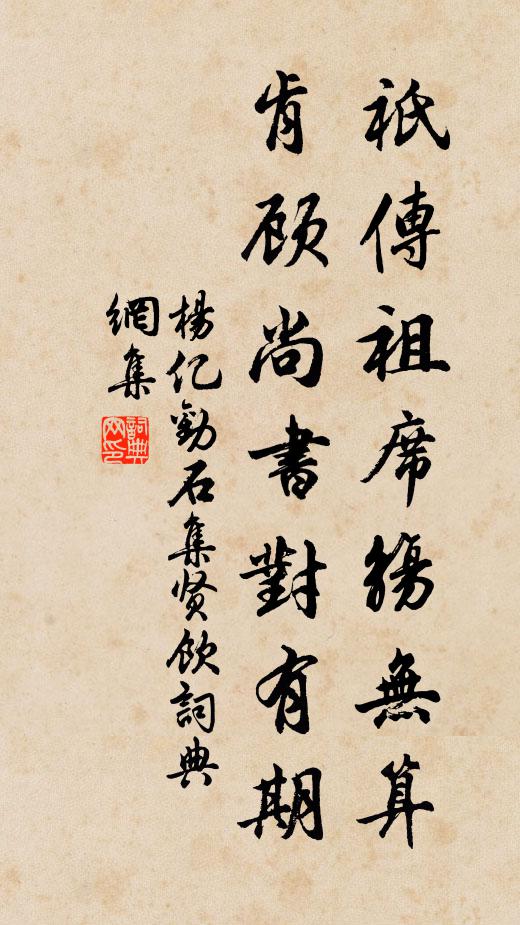 祇傳祖席觴無算
肯顾尚書對有期
楊亿勸石集贤飲詞典
網集
詞典
网印